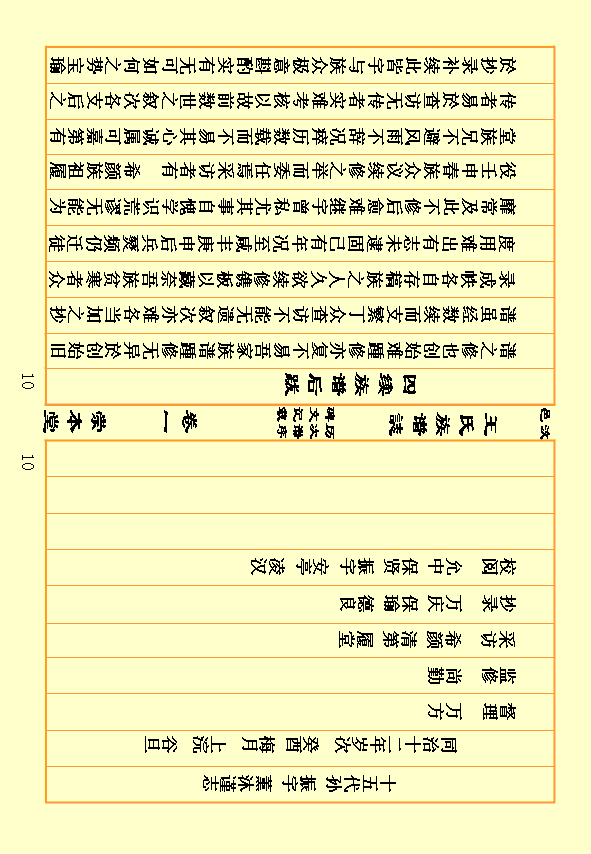 十五代 孙 振宇 薰沐谨志
同治十二年岁次 癸酉 梅月 上浣 谷旦
督理 万方
监修 尚勤
采访 希颜 清第 履堂
抄录 万庆 保瑜 德良
校阅 允中 保贤 振宇 安亭 凌汉
10
汶邑 王氏族谱誌 历次谱序 碑文记载 卷一 崇本堂
四续族谱后跋
谱之修也创始难踵修亦复不易吾家族谱踵修无异於创始旧
谱虽经数续而支繁丁众查访不能无遗叙次亦难各当加之抄
录成帙各自存稿族之人久欲续修镌板以藏奈吾族贫寒者众
度用难出有志未建固已有年况至咸丰庚申后兵燹频仍迁徙
靡常及此不修后愈难继宇曾私尤其事自愧学识荒谬无能为
役壬申春族众议续修之举而委任焉采访者有 希颜族祖履
堂族兄不避风雨不辞况瘁历数载而不易其心诚属可嘉第有
传者易於查访无传者实难考核故以前数世之叙次各支后之
於抄录补续此皆宇与族众极意斟酌实有无可如何之势宝瑜
10